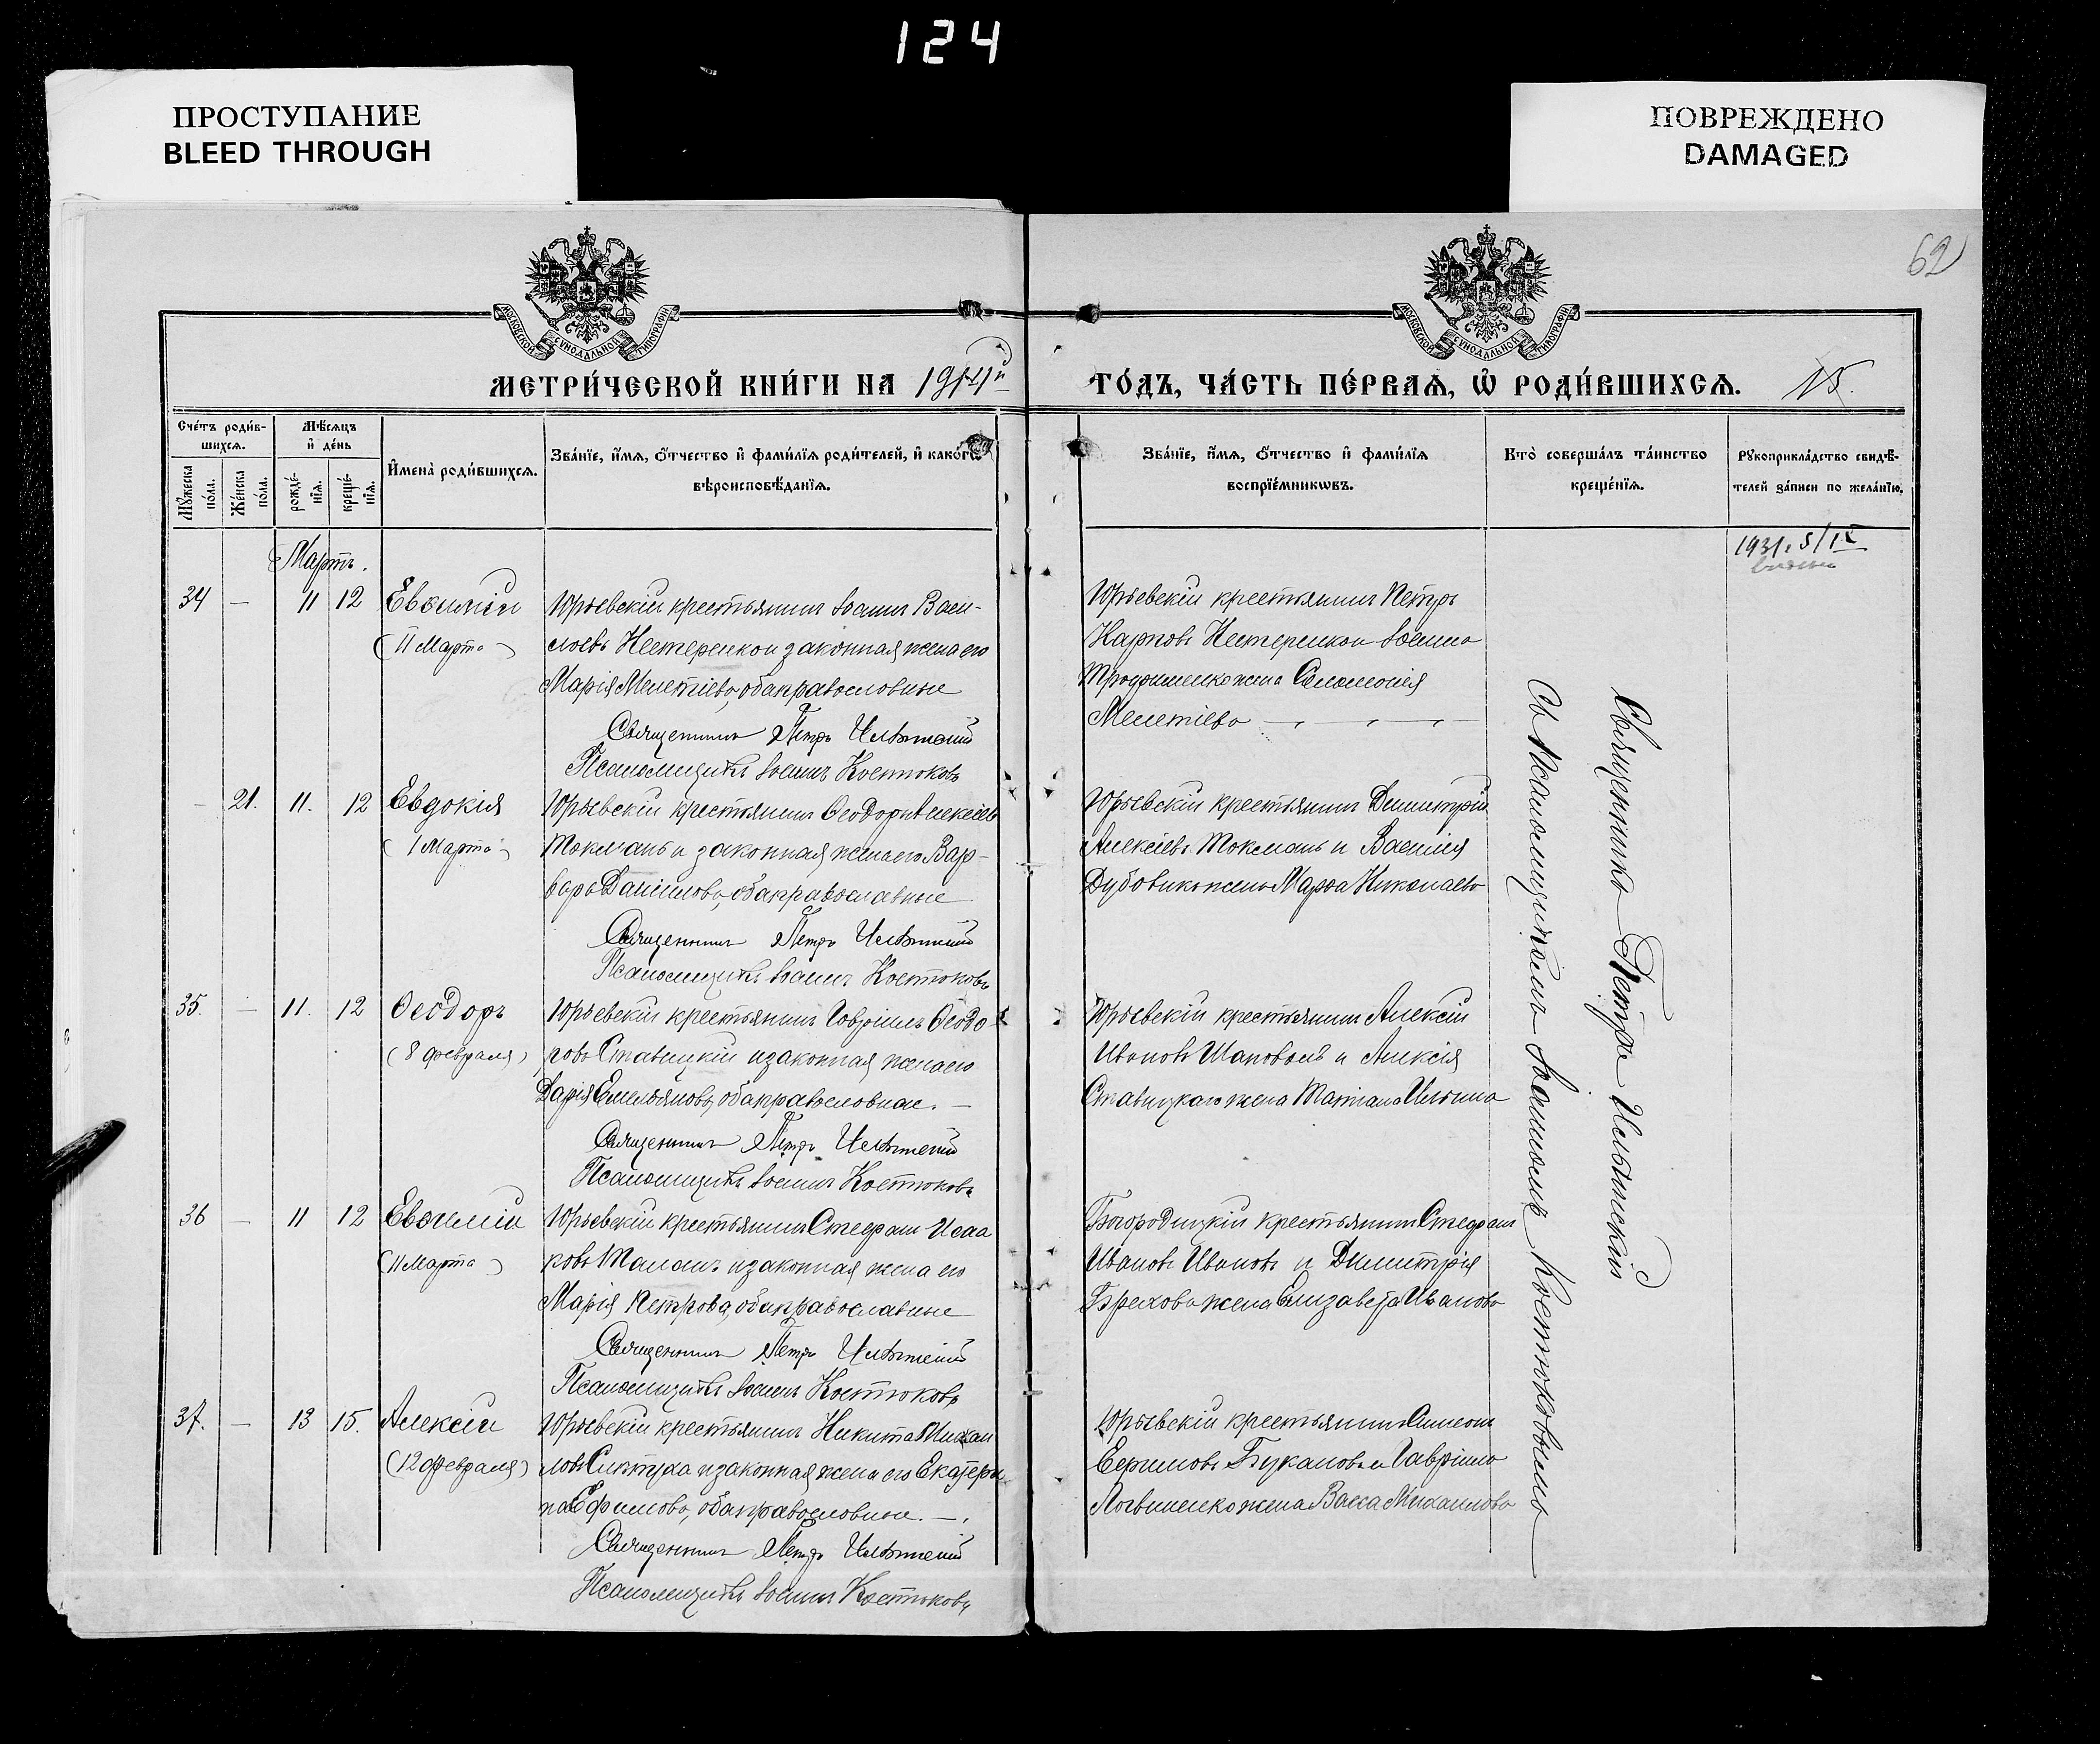 124
ПРОСТУПАНИЕ
BLEED THROUGH
ПОВРЕЖДЕНО
DAMAGED
62
МОСКОВСКОЙ СѴНОДАЛЬНОЙ ТИПОГРАФІИ
МОСКОВСКОЙ СѴНОДАЛЬНОЙ ТИПОГРАФІИ
МЕТРИ́ЧЕСКОЙ КНИ́ГИ НА 1914й
ГО́ДЪ, ЧА́СТЬ ПЕ́РВАѦ, Ѡ҆ РОДИ́ВШИХСѦ. 15.
Сче́тъ роди́вшихсѧ.
Мѣ́сяцъ и҆ де́нь
Мꙋ́жеска по́ла.
Же́нска по́ла.
рожде́нїѧ.
креще́нїѧ.
И҆мена̀ роди́вшихсѧ.
Зва́нїе, и҆́мѧ, ѻ҆́тчество и҆ фами́лїѧ роди́телей, и҆ како́гѡ
вѣроисповѣ́данїѧ.
Зва́нїе, и҆́мѧ, ѻ҆́тчество и҆ фами́лїѧ
воспрїе́мникѡвъ.
Кто̀ соверша́лъ та́инство
креще́нїѧ.
Рꙋкоприкла́дство свидѣ́телей за́писи по жела́нїю.
Мартъ.
1931. 5/IX
34 — 11 12 Евѳимій
(11 Марта)
Юрьевскій крестьянинъ Іоаннъ Васи-
льевъ Нестеренко и законная жена его
Марія Мелетіева, оба православные
Священникъ Петръ Ильинскій
Псаломщикъ Іоаннъ Костюковъ
Юрьевскій крестьянинъ Петръ
Карповъ Нестеренко и Іоанна
Трофименко жена Соломонія
Мелетіева
— 21. 11. 12 Евдокія
(1 Марта)
Юрьевскій крестьянинъ Ѳеодоръ Алексіевъ
Токмань и законная жена его Вар-
вара Даніилова, оба православные
Священникъ Петръ Ильинскій
Псаломщикъ Іоаннъ Костюковъ
Юрьевскій крестьянинъ Димитрій
Алексіевъ Токмань и Василія
Дубовика жена Марѳа Николаева
35. — 11. 12 Ѳеодоръ
(8 февраля)
Юрьевскій крестьянинъ Гавріилъ Ѳеодо-
ровъ Ставицкій и законная жена его
Дарія Емельянова, оба православные. —
Священникъ Петръ Ильинскій
Псаломщикъ Іоаннъ Костюковъ
Юрьевскій крестьянинъ Алексій
Ивановъ Шаповалъ и Алексія
Ставицкаго жена Татіана Ильина
36 — 11 12 Евѳимій
(11 Марта)
Юрьевскій крестьянинъ Стефанъ Исаа
ковъ Таланъ и законная жена его
Марія Петрова, оба православные
Священникъ Петръ Ильинскій
Псаломщикъ Іоаннъ Костюковъ
Богородицкій крестьянинъ Стефанъ
Ивановъ Ивановъ и Димитрія
Брехова жена Елизавета Иванова
37. — 13 15. Алексій
(12 Февраля)
Юрьевскій крестьянинъ Никита Михаи
ловъ и законная жена его Екатери
на Ефимова, оба православные. —
Священникъ Петръ Ильинскій
Псаломщикъ Іоаннъ Костюковъ
Юрьевскій крестьянинъ Симеонъ
Букановъ и Гавріила
Логвиненко жена Васса Михаилова
Священникъ Петръ Ильинскій
Съ Псаломщикомъ Іоанномъ Костюковымъ